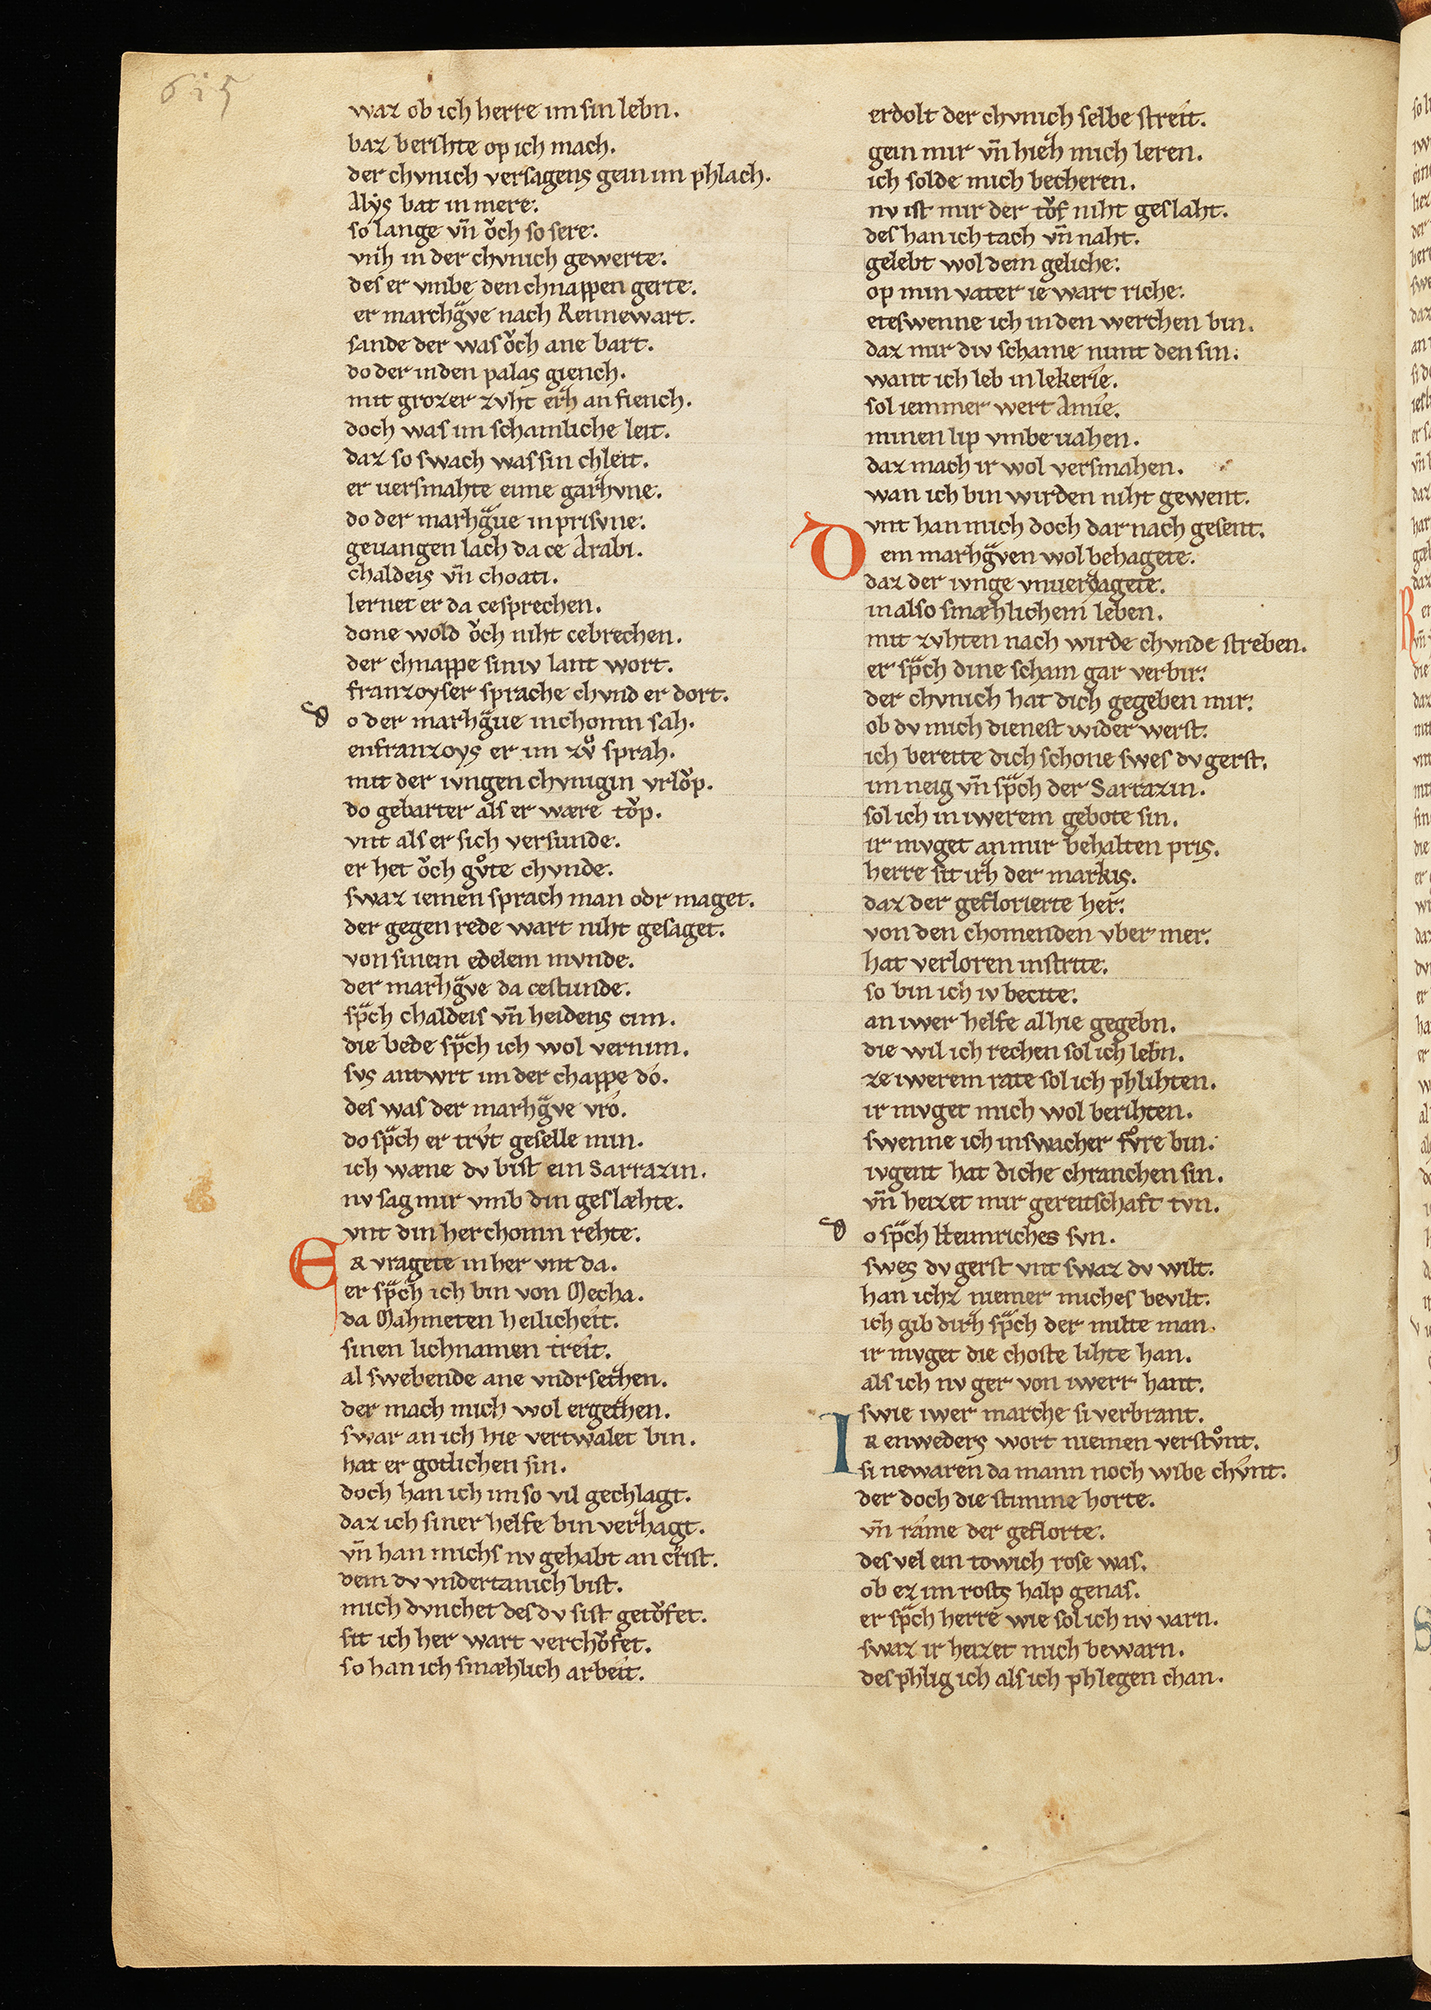 615
waz ob ich herre im sin lebn.
baz berihte op ich mach.
der chvnich versagens gein im phlach.
Alẏs bat in mere.
so lange vn̄ oͮch so sere.
vnͤh in der chvnich gewerte.
des er vmbe den chnappen gerte.
er marchgᷓve nach Rennewart.
sande der was oͮch ane bart.
do der in den palas giench.
mit grozer zvht erͤh an fiench.
doch was im schamliche leit.
daz so swach was sin chleit.
er uersmahte eime garͤhvne.
do der marhgᷓue in prisvne.
geuangen lach da ce Arabi.
chaldeis vn̄ choati.
lernet er da cesprechen.
done wold oͮch niht cebrechen.
der chnappe siniv lant wort.
franzoyser sprache chvnd er dort.
do der marhgᷓue in chomn sah.
enfranzoys er im zvͦ sprah.
mit der ivngen chvnigin vrloͮp.
do gebarter als er wære toͮp.
vnt als er sich versunde.
er het oͮch gvͦte chvnde.
swaz iemen sprach man odr maget.
der gegen rede wart niht gesaget.
von sinem edelem mvnde.
der marhgᷓve da cestunde.
spᷓch chaldeis vn̄ heidens cim.
die bede spᷓch ich wol vernim.
svs antwrt im der chappe dó.
des was der marhgᷓve vró.
do spᷓch er trv́t geselle min.
ich wæne dv bist ein Sarrazin.
nv sag mir vmb din geslæhte.
vnt din herchomn rehte.
ER vragete in her vnt da.
er spᷓch ich bin von Mecha.
da Mahmeten heilicheit.
sinen lichnamen treit.
al swebende ane vndrsetͤhen.
der mach mich wol ergetͤhen.
swar an ich hie vertwalet bin.
hat er gotlichen sin.
doch han ich im so vil gechlagt.
daz ich siner helfe bin verͤhagt.
vn̄ han michs nv gehabt an crist.
dem dv vndertanich bist.
mich dvnchet des dv sist getoͮfet.
sit ich her wart verchoͮfet.
so han ich smæhlich arbeit.
erdolt der chvnich selbe streit.
gein mir vn̄ hieͤh mich leren.
ich solde mich becheren.
nv ist mir der toͮf niht geslaht.
des han ich tach vn̄ naht.
gelebt wol dem geliche.
op min vater ie wart riche.
eteswenne ich in den werchen bin.
daz mir div schame nimt den sin.
want ich leb in lekerie.
sol iemmer wert Amie.
minen lip vmbeuahen.
daz mach ir wol versmahen.
wan ich bin wirden niht gewent.
vnt han mich doch dar nach gesent.
Dem marhgᷓven wol behagete.
daz der ivnge vnuerdagete.
in also smæhlichem leben.
mit zvhten nach wirde chvnde streben.
er spᷓch dine scham gar verbir.
der chvnich hat dich gegeben mir.
ob dv mich dienest wider werst.
ich bereite dich schone swes dv gerst.
im neig vn̄ spᷓch der Sarrazin.
sol ich in iwerem gebote sin.
ir mvget an mir behalten pris.
herre sit irͤh der markis.
daz der geflorierte her.
von den chomenden vber mer.
hat verloren in strite.
so bin ich iv becite.
an iwer helfe alhie gegebn.
die wil ich rechen sol ich lebn.
ze iwerem rate sol ich phlihten.
ir mvget mich wol berihten.
swenne ich inswacher fvͦre bin.
ivgent hat diche chranchen sin.
vn̄ heizet mir gereitschaft tvn.
do spᷓch Heimriches svn.
swes dv gerst vnt swaz dv wilt.
han ichz niemer miches bevilt.
ich gib dirͤh spᷓch der milte man.
ir mvget die choste lihte han.
als ich nv ger von iwerr hant.
swie iwer marche si verbrant.
IR enweders wort niemen verstvͦnt.
si newaren da mann noch wibe chv́nt.
der doch die stimme horte.
vn̄ rame der geflorte.
des vel ein towich rose was.
ob ez im rosts halp genas.
er spᷓch herre wie sol ich nv varn.
swaz ir heizet mich bewarn.
des phlig ich als ich phlegen chan.